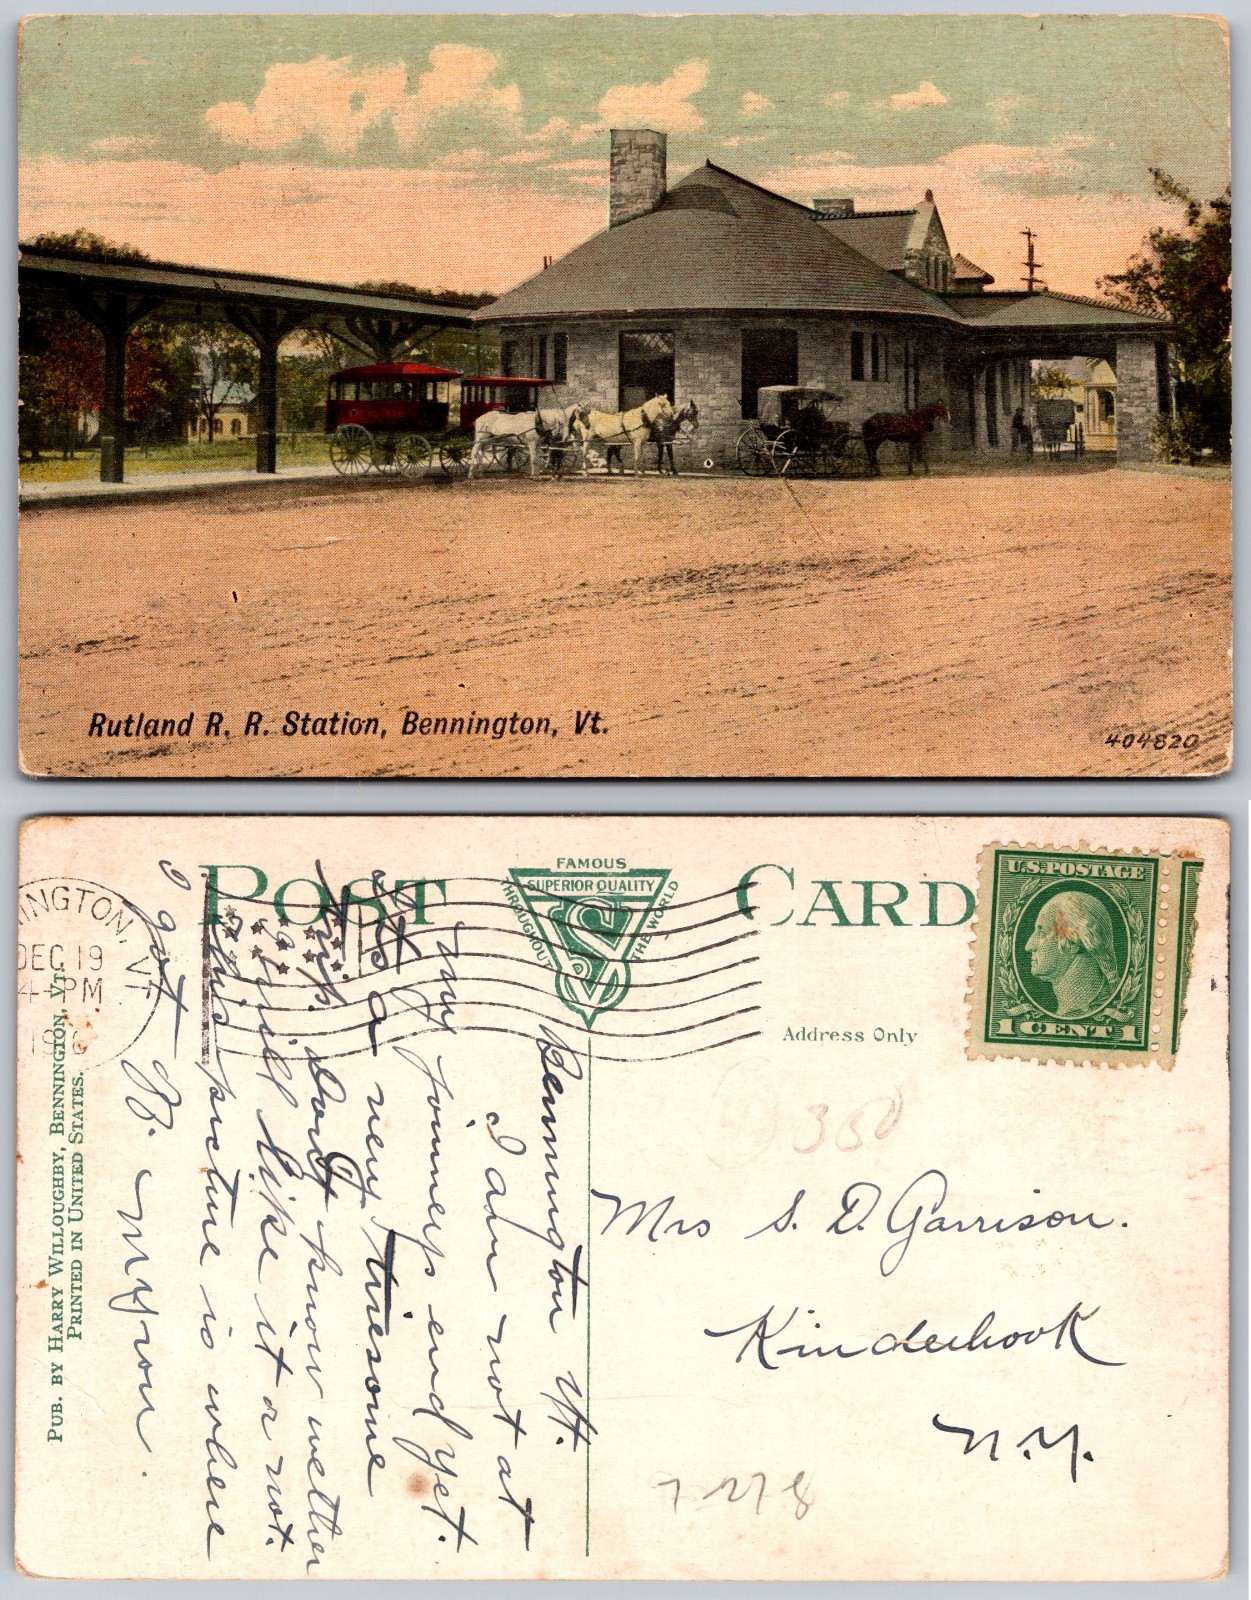 Rutland R. R. Station, Bennington, Vt.
404820
POST CARD
FAMOUS
SUPERIOR QUALITY
THROUGHOUT
THE WORLD
U.S. POSTAGE
1 CENT 1
NINGTON, VT
DEC 19
4-PM
191
Address Only
Bennington Vt.
I am not at
my joinneys end yet.
Its a very tiresome
trip. Dont know wether
I will like it or not.
This picture is where
I got
Myron.
350
Mrs S. D. Garrison.
Kinderhook
N.Y.
7 278
PUB. BY HARRY WILLOUGHBY, BENNINGTON, VT.
PRINTED IN UNITED STATES.